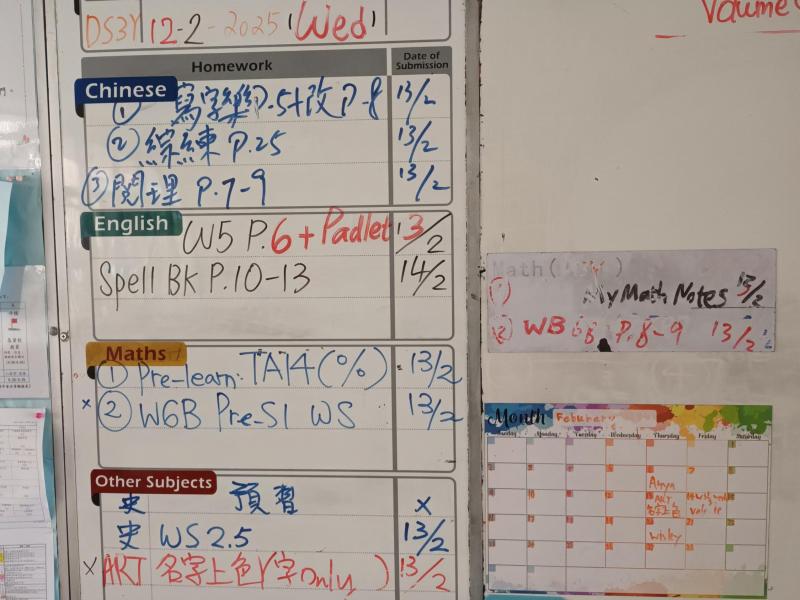 DS3Y 12-2-2025 (Wed)
Homework Date of Submission
Chinese
① 寫字樂P.5+改P.8 13/2
② 綜練 P.25 13/2
③ 閱理 P.7-9 13/2
English
W5 P.6 + Padlet 13/2
Spell BK P.10-13 14/2
Maths
① Pre-learn: TA14(%) 13/2
x ② W6B Pre-S1 WS 13/2
Other Subjects
史 預習 x
史 WS 2.5 13/2
x ART 名字上色(字only) 13/2
Volume
Math
① My Math Notes 13/2
② WB 6B P.8-9 13/2
Month Feburary
Monday Tuesday Wednesday Thursday Friday Saturday
Anya
ART
名字上色
Wesley